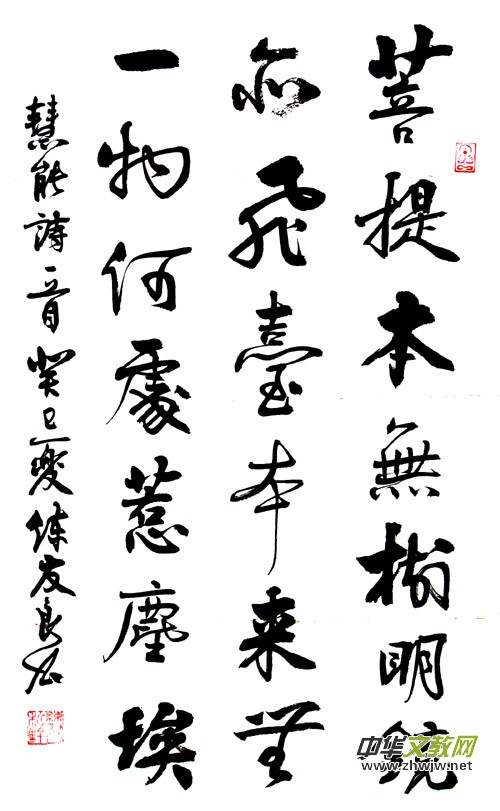 菩提本無樹明鏡
亦飛臺本来無
一物何處惹塵埃
慧能詩一首癸巳夏
中华文教网
www.zhwjw.net